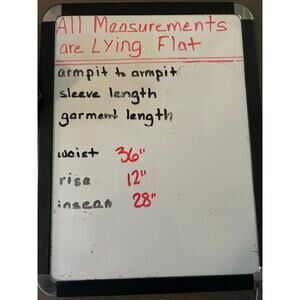 All Measurements
are Lying Flat
armpit to armpit
sleeve length
garment length
waist 36"
rise 12"
inseam 28"